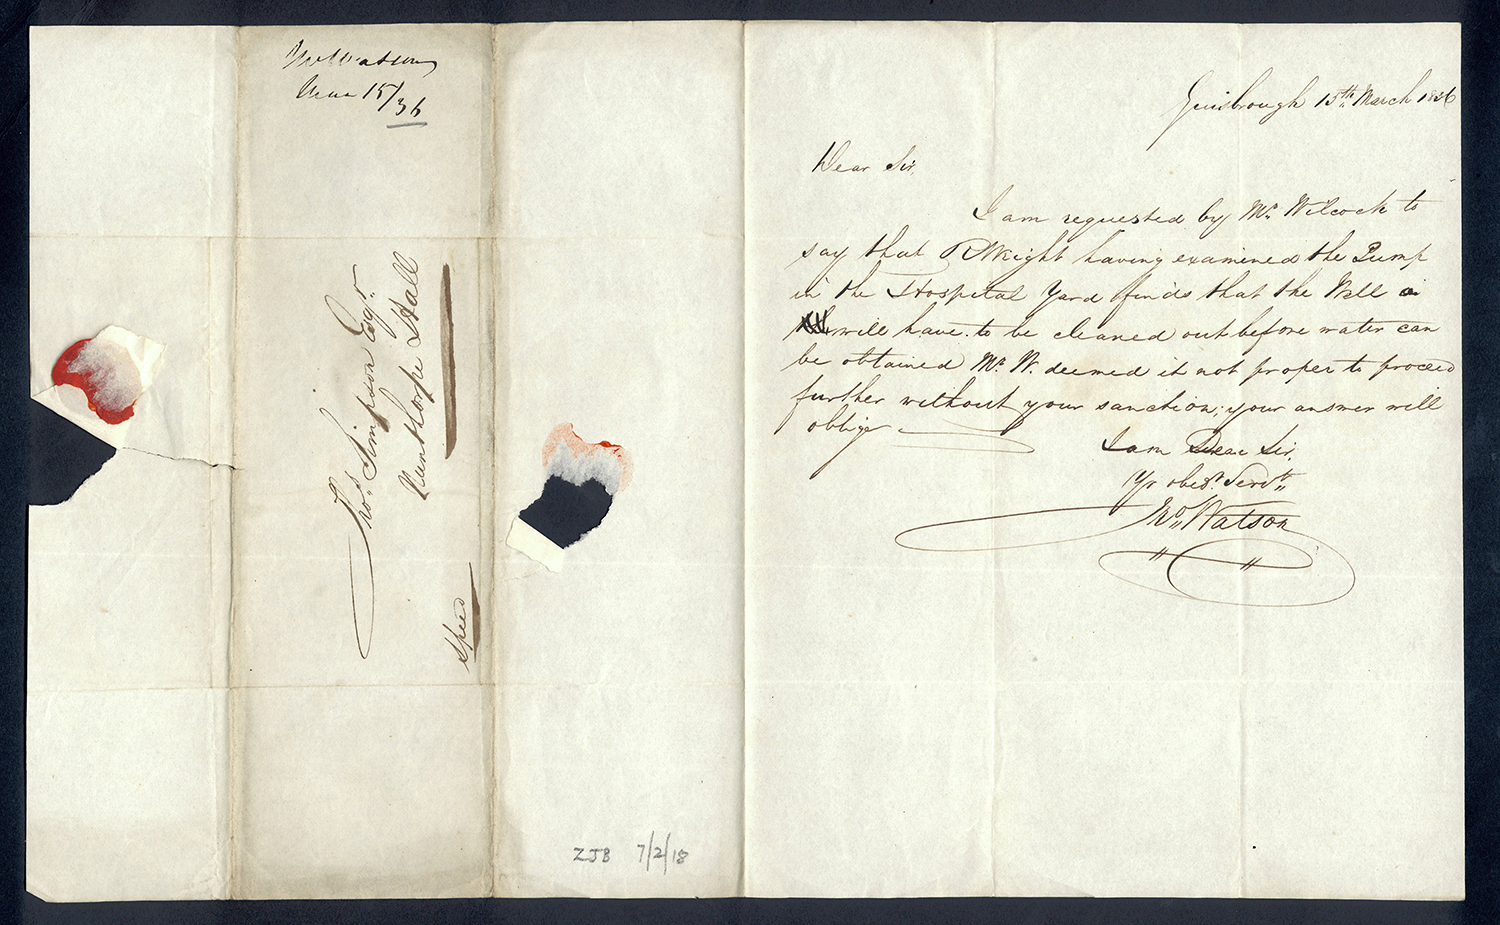 Jno Watson
Mar 15/36
Thos. Simpson Esqr.
Nunthorpe Hall
Speed
ZJB 7/2/18
Guisbrough 15th March 1836
Dear Sir,
I am requested by Mr. Wilcock to
say that R Wright having examined the Pump
in the Hospital Yard finds that the Well
will have to be cleaned out before water can
be obtained Mr. W. deemed it not proper to proceed
further without your sanction; your answer will
oblige
I am Dear Sir,
Yr obedt. Servt.
Jno. Watson